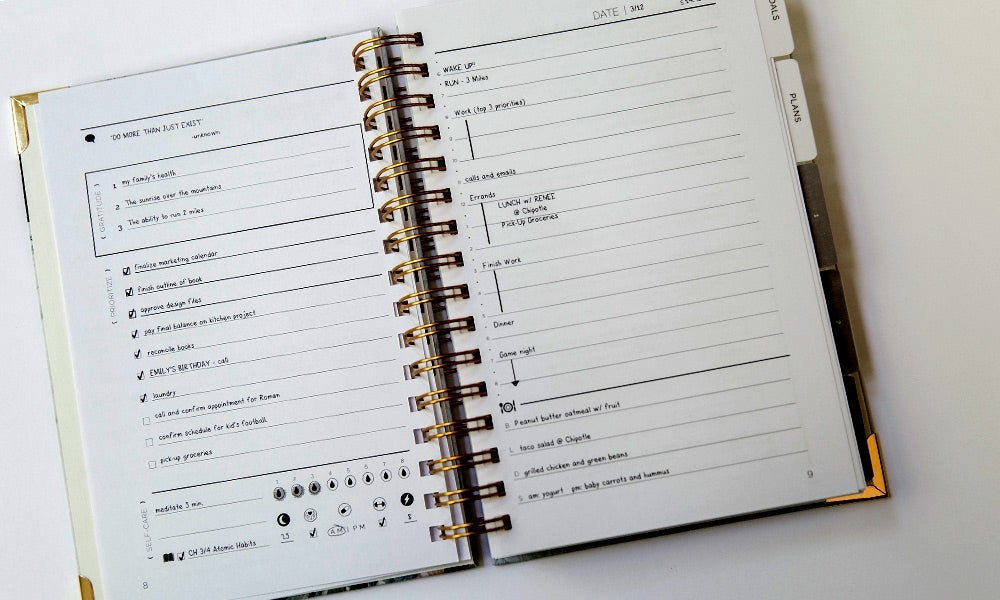 "DO MORE THAN JUST EXIST"
-unknown
{ GRATITUDE }
1 my family's health
2 The sunrise over the mountains
3 The ability to run 2 miles
{ PRIORITIZE }
finalize marketing calendar
finish outline of book
approve design files
pay final balance on kitchen project
reconcile books
EMILY'S BIRTHDAY - call
laundry
call and confirm appointment for Roman
confirm schedule for kid's football
pick-up groceries
{ SELF-CARE }
1 2 3 4 5 6 7 8
meditate 3 min.
7.5 AM | PM 8
CH 3/4 Atomic Habits
8
DATE | 3/12
WAKE UP!
RUN - 3 Miles
Work (top 3 priorities)
calls and emails
Errands
LUNCH w/ RENEE
@ Chipotle
Pick-Up Groceries
Finish Work
Dinner
Game night
B Peanut butter oatmeal w/ fruit
L taco salad @ Chipotle
D grilled chicken and green beans
S am: yogurt pm: baby carrots and hummus
9
PLANS